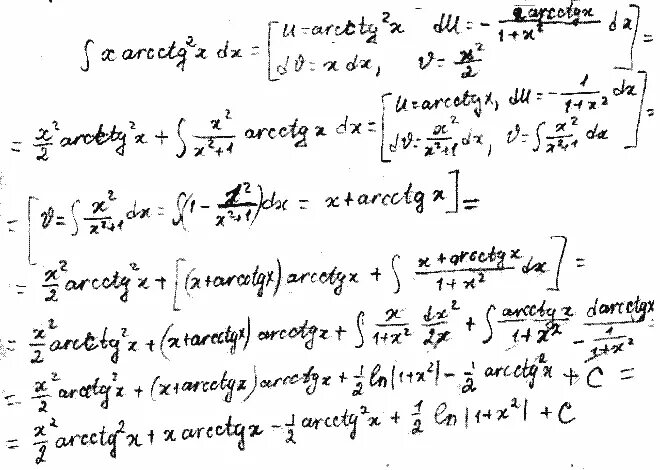 ∫ x arcctg²x dx = [ u = arcctg²x  du = - 2arcctgx/(1+x²) dx ; dv = x dx, v = x²/2 ] =
= x²/2 arcctg²x + ∫ x²/(x²+1) arcctg x dx = [ u = arcctgx, du = - 1/(1+x²) dx ; dv = x²/(x²+1) dx, v = ∫ x²/(x²+1) dx ] =
= [ v = ∫ x²/(x²+1) dx = ∫(1 - 1/(x²+1))dx = x + arcctg x ] =
= x²/2 arcctg²x + [ (x+arcctgx) arcctgx + ∫ (x+arcctgx)/(1+x²) dx ] =
= x²/2 arcctg²x + (x+arcctgx) arcctgx + ∫ x/(1+x²) dx²/2x + ∫ arcctgx/(1+x²) darcctgx/(-1/(1+x²))
= x²/2 arcctg²x + (x+arcctgx) arcctgx + 1/2 ln|1+x²| - 1/2 arcctg²x + C =
= x²/2 arcctg²x + x arcctgx - 1/2 arcctg²x + 1/2 ln|1+x²| + C